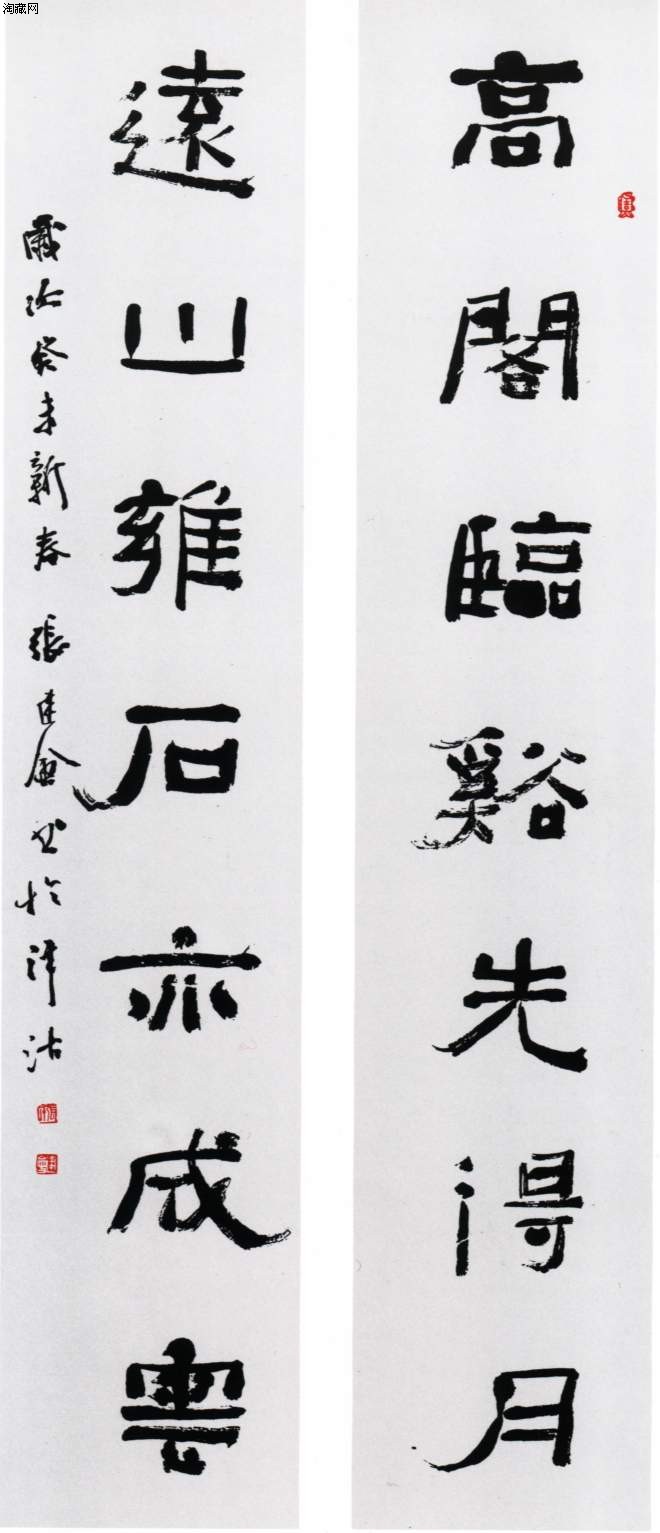 淘藏网
高閣臨谿先得月
遠山雍石亦成雲
歲次癸未新春 張建會書於津沽